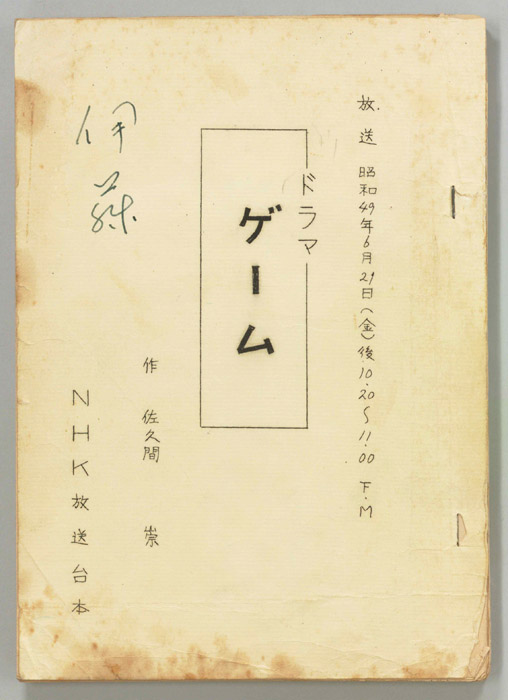 放送 昭和49年6月21日(金)後10.20〜11.00 F.M
ドラマ
ゲーム
作 佐久間 崇
伊藤
NHK放送台本